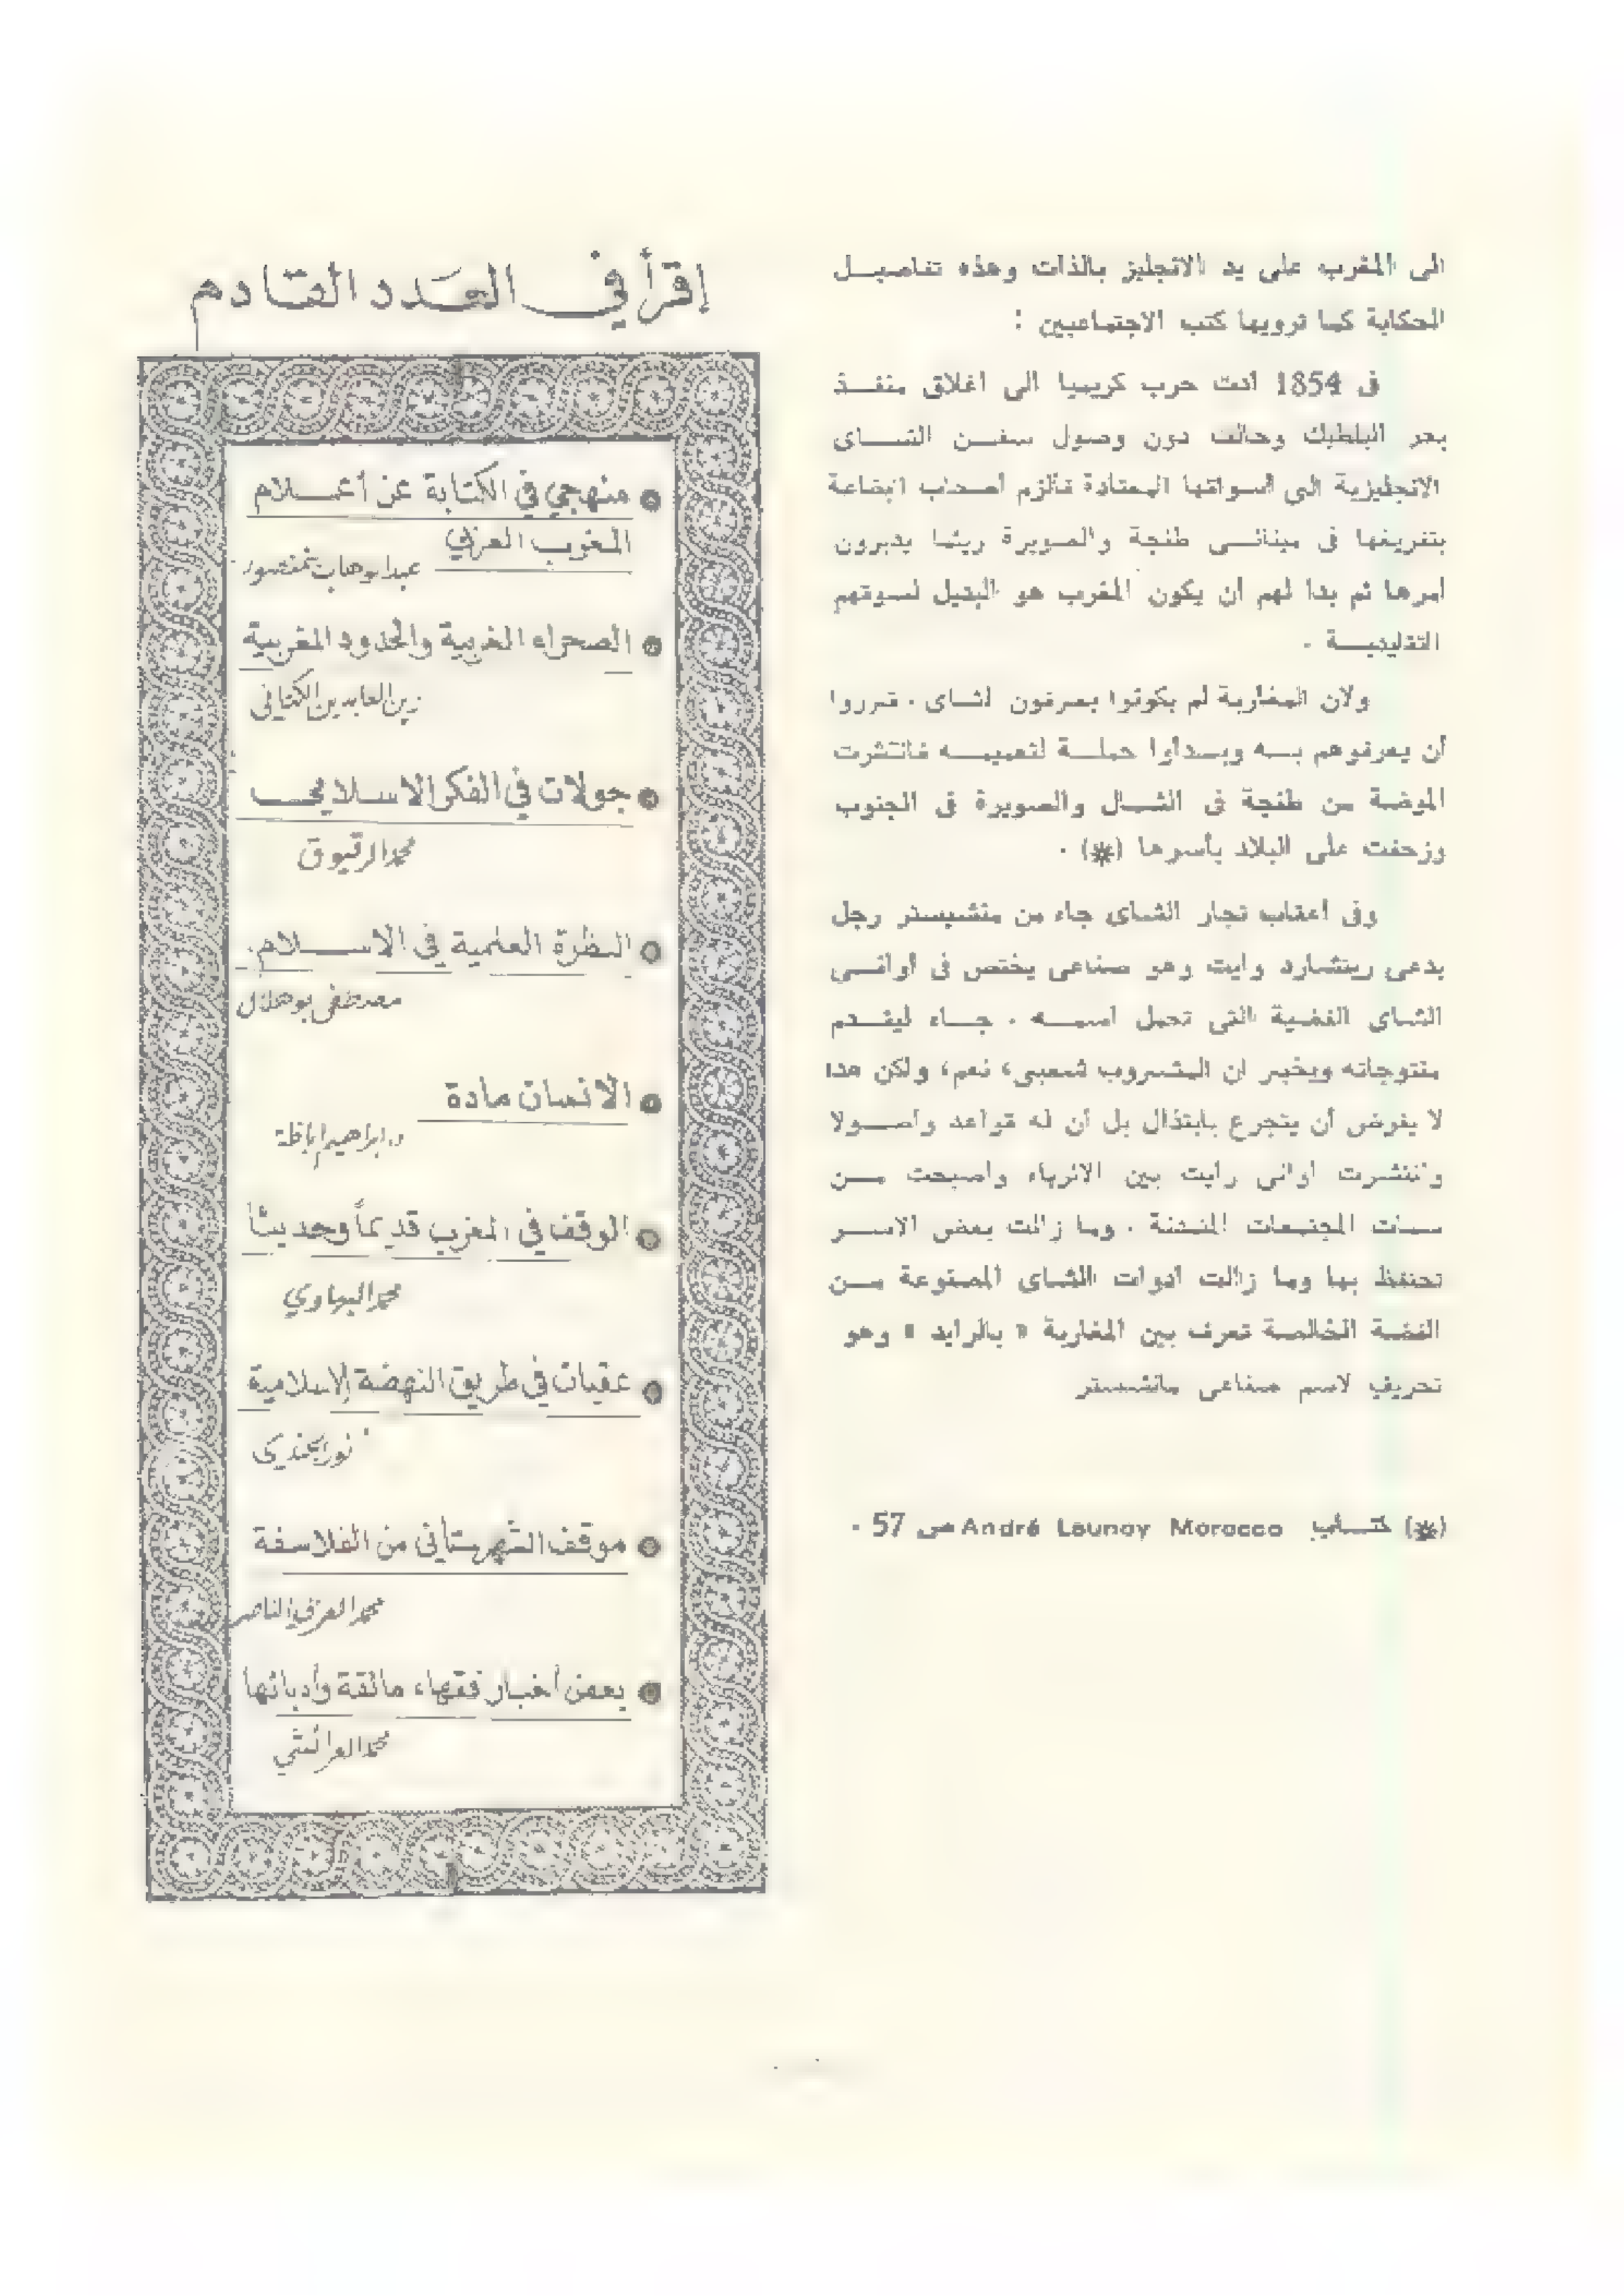 الى المغرب على يد الانجليز بالذات وهذه تفاصيل
الحكاية كما ترويها كتب الاجتماعيين :
فى 1854 أدت حرب كريميا الى اغلاق منفذ
بحر البلطيك وحالت دون وصول سفن الشاى
الانجليزية الى أسواقها المعتادة فألزم أصحاب البضاعة
بتفريغها فى مينائى طنجة والصويرة ريثما يدبرون
أمرها ثم بدا لهم أن يكون المغرب هو البديل لسوقهم
التقليدية .
ولان المغاربة لم يكونوا يعرفون الشاى . قرروا
أن يعرفوهم به وبدأوا حملة لتعميمه فانتشرت
الموضة من طنجة فى الشمال والصويرة فى الجنوب
وزحفت على البلاد بأسرها (*) .
وفى أعقاب تجار الشاى جاء من منشيستر رجل
يدعى ريتشارد وايت وهو صناعى يختص فى أوانى
الشاى الفضية التى تحمل اسمه . جاء ليقدم
منتوجاته ويخبر ان المشروب شعبى، نعم، ولكن هذا
لا يفرض أن يتجرع بابتذال بل أن له قواعد وأصولا
وانتشرت أوانى رايت بين الاثرياء وأصبحت من
سمات المجتمعات المتمدنة . وما زالت بعض الاسر
تحتفظ بها وما زالت أدوات الشاى المصنوعة من
الفضة الخالصة تعرف بين المغاربة « بالرايد » وهو
تحريف لاسم صناعى مانشستر
(*) كتاب André Launay Morocco ص 57 .
إقرأ في العدد القادم
منهجي في الكتابة عن أعلام
المغرب العربي
عبد الوهاب بنمنصور
الصحراء المغربية والحدود المغربية
زين العابدين الكتاني
جولات في الفكر الاسلامي
محمد الرقيوق
النظرة العلمية في الاسلام.
مصطفى بوهلال
الانسان مادة
د. ابراهيم اباظة
الوقف في المغرب قديماً وحديثاً
محمد البهاوي
عقبات في طريق النهضة الإسلامية
نور الجندي
موقف الشهرستاني من الفلاسفة
محمد العربي الناصر
بعض أخبار فقهاء مالقة وأدبائها
محمد العرائشي